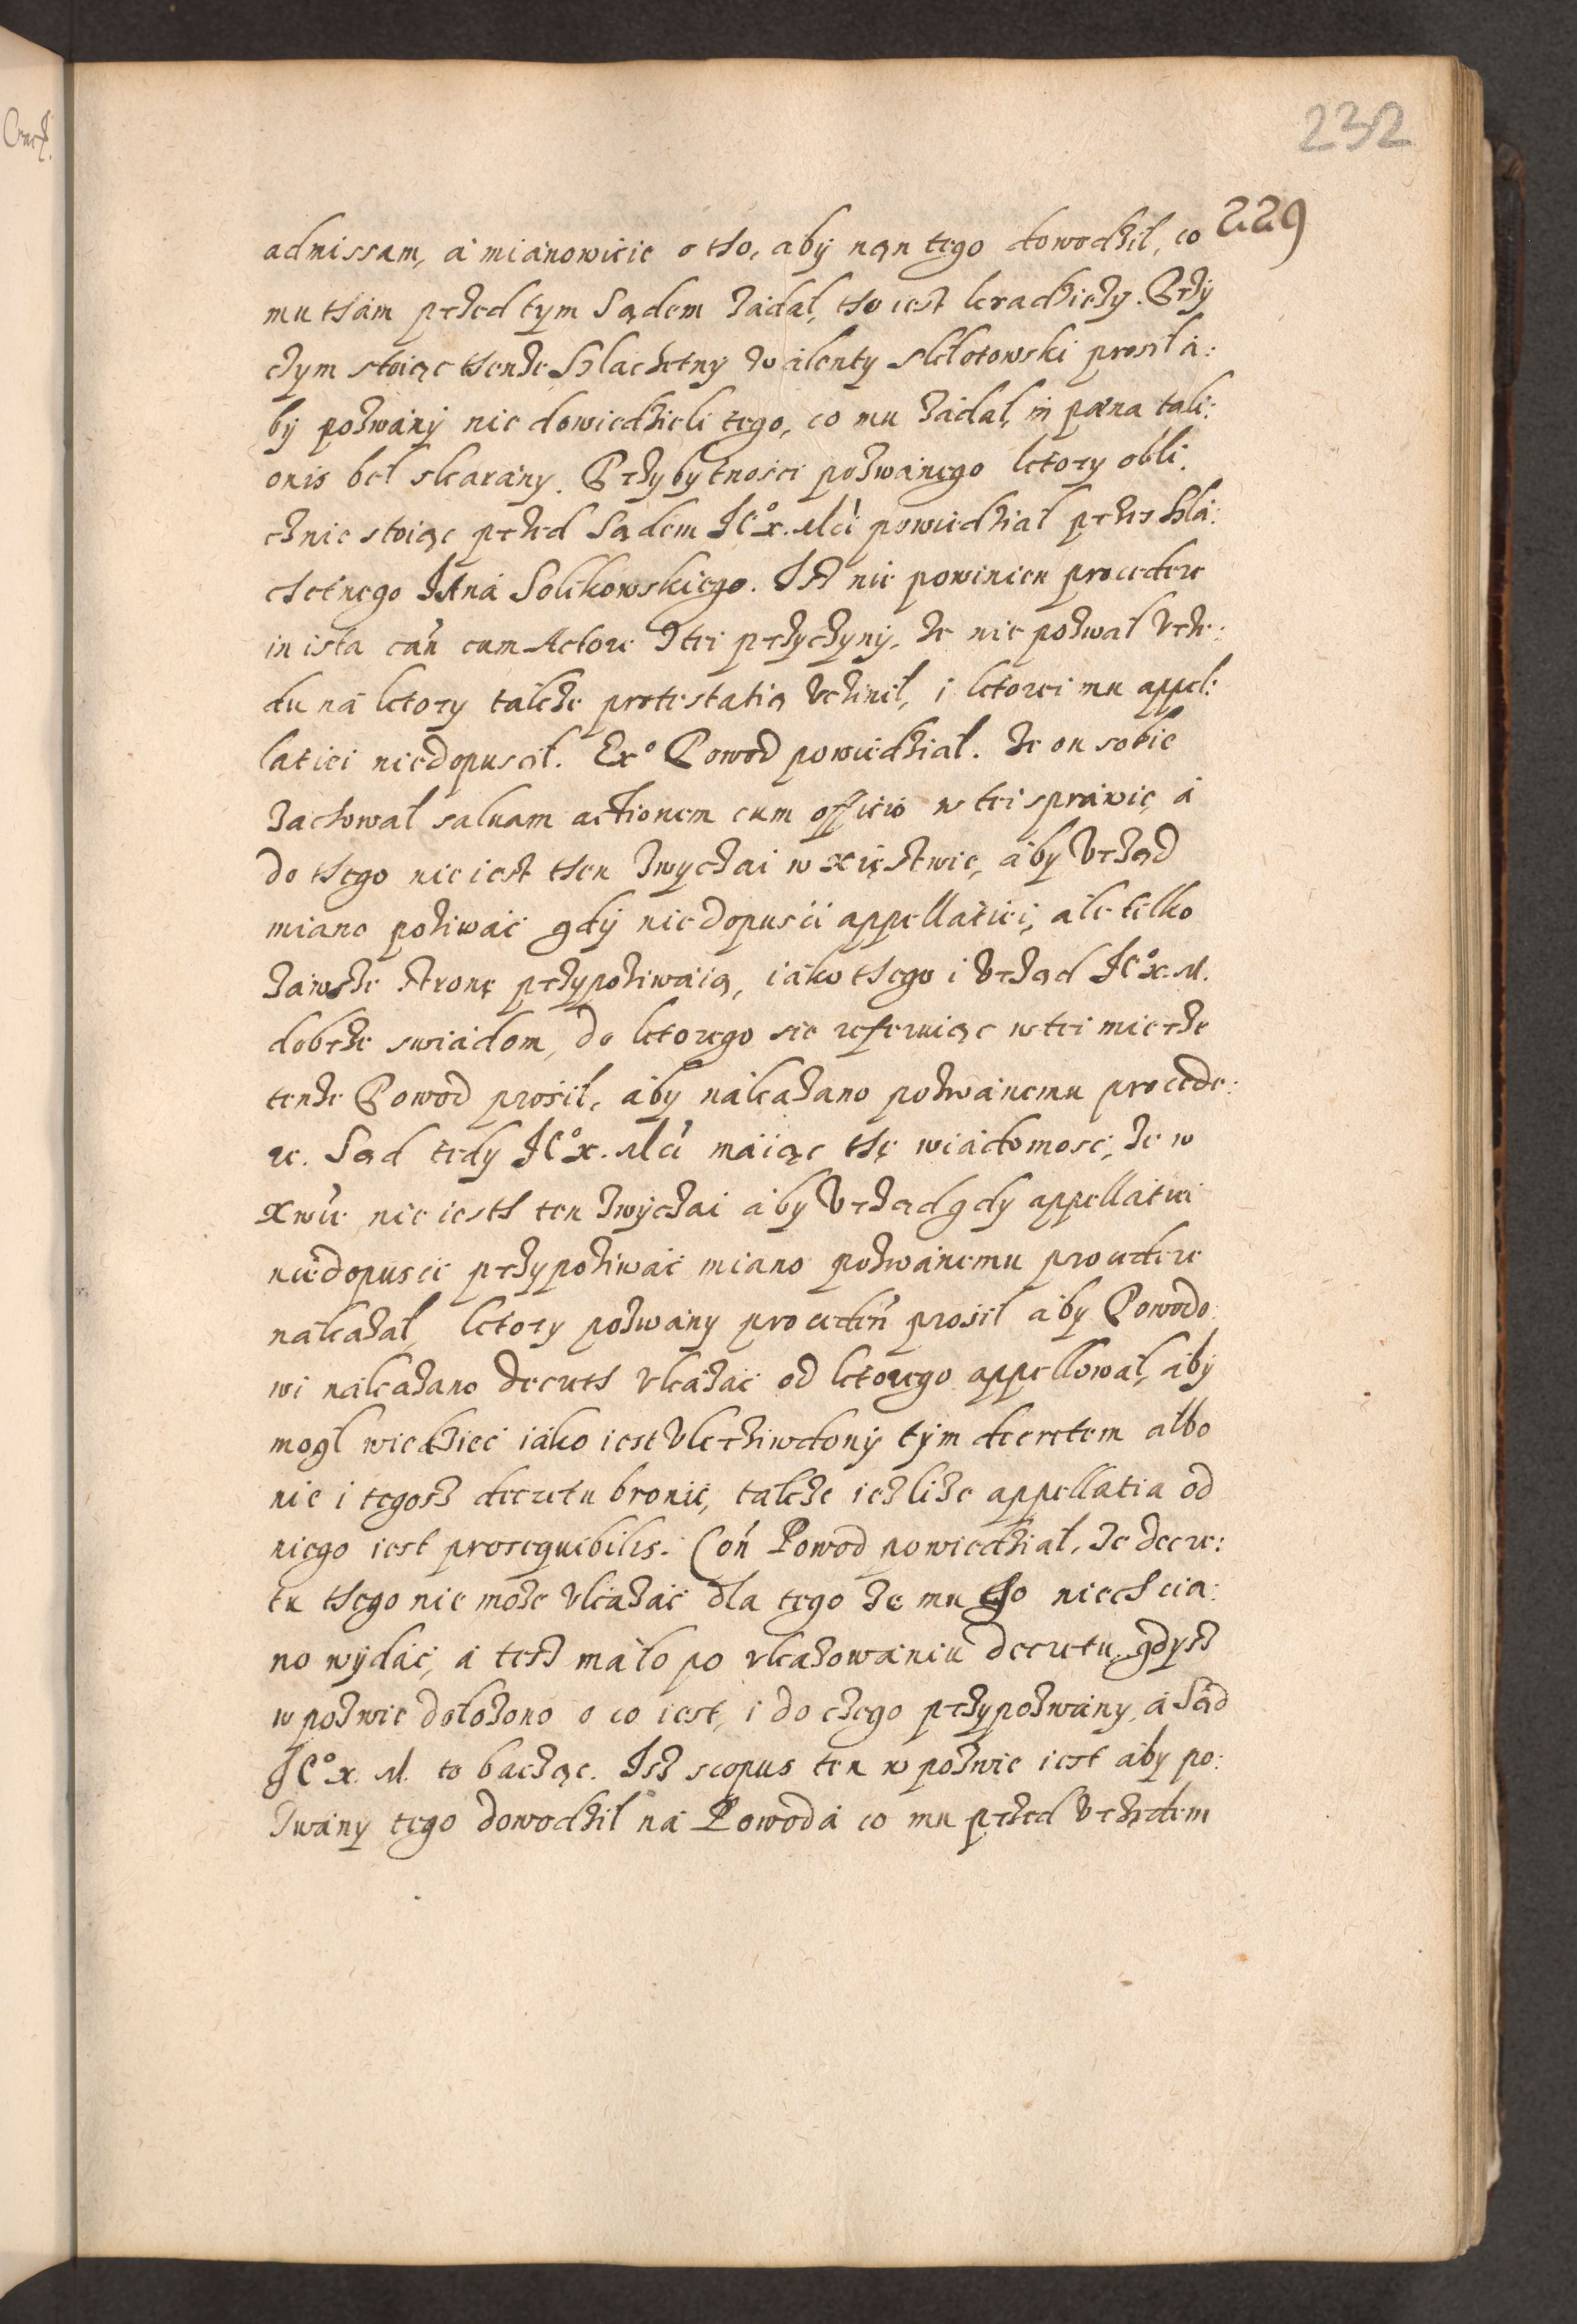 232
229
admissam, á miánowicie o tho, aby nąn tego dowodził, co
mu thám przed tym Sądem zádał, tho iest kradzieży. Przÿ
czym stoiąc thenże Szlachetny Wálenty Skłotowski prosił á:
bÿ pozwánÿ nie dowiedzieli tego, co mu zádał, in pæna tali:
onis beł skarány. Przybytnosci pozwánego ktory obli:
cznie stoiąc przed Sądem JE°x. Mći powiedział przes szlá:
chetnego Jáná Solikowskiego. Isz nie powinien procedere
in ista cáń cum Actore Ztei przyczynÿ, że nie pozwał Vrzę:
du ná ktory tákże protestatią vczinił, i ktorei mu appel:
latiei niedopuscił. Ex° Powod powiedział. Że on sobie
záchował saluam actionem cum officio w tei spráwie, á
do thego nie iest then zwyczai w xięstwie, áby Vrząd
miano poziwáć gdÿ niedopusci appellatiei, ále telko
záwsze stronę przypoziwáią, iáko thego i Vrząd JE°x. M.
dobrze swiádom, do ktorego sie referuiąc w tei mierze
tenże Powod prosił, áby nákazano pozwánemu procede:
re. Sąd tedy JE°x. Mći máiąc thę wiádomosć, że w
xwie nie iesth ten zwÿczai áby Vrząd gdy appellátiei
niedopusci przypoziwáć miano pozwánemu procedere
nákazał, ktory pozwány proceden̄ prosił áby Powodo:
wi nákazano decreth vkázáć od ktorego appellował, ábÿ
mogł wiedzieć iáko iest vkrziwdonÿ tÿm decretem álbo
nie i tegosz decretu bronić, tákże ieżliże appellatia od
niego iest prosequibilis. Coń Powod powiedział, że decre:
tu thego nie może vkázáć dla tego że mu tho niechcia:
no wÿdáć, á tesz máło po vkazowániu decretu, gdysz
w pozwie dołożono o co iest, i do czego przypozwány, á Sąd
JE°x. M. to bacząc. Isz scopus ten w pozwie iest áby po:
zwány tego dowodził ná Powodá co mu przed Vrzędem